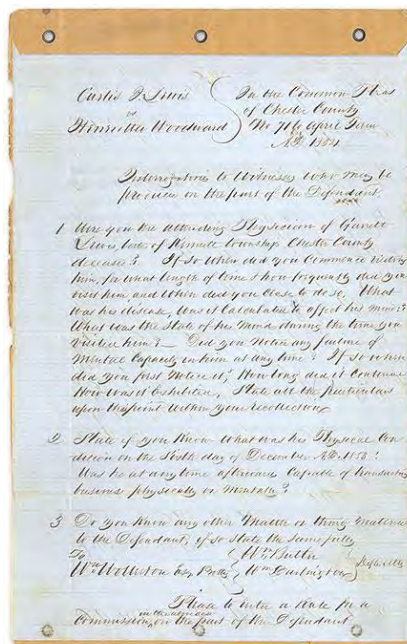 Curtis J. Lewis
vs
Henrietta Woodward
In the Common Pleas
of Chester County
No 76 April Term
AD 1854
Interrogatories to Witnesses who may be
produced on the part of the Defendant
1 Were you the attending Physician of
Lewis late of township Chester County
deceased? If so when did you Commence visiting
him, for what length of time & how frequently did you
visit him and when did you Cease to do so. What
was his disease, was it Calculated to affect his mind?
What was the State of his mind during the time you
visited him? Did you Notice any failure of
Mental Capacity in him at any time? If so when
did you first Notice it, How long did it Continue
How was it Exhibited, State all the particulars
upon this point within your recollection
2 State if you Know what was his Physical Con-
dition on the Sixth day of December A.D. 1853?
Was he at any time afterwards Capable of transacting
business physically or Mentally?
3 Do you Know any other Matter or thing Material
to the Defendant, if so state the same fully
To
Wm Wollerton Esq Prothy
Wm Butler
Wm Darlington
Please to enter a Rule for a
Commission on the part of the Defendant